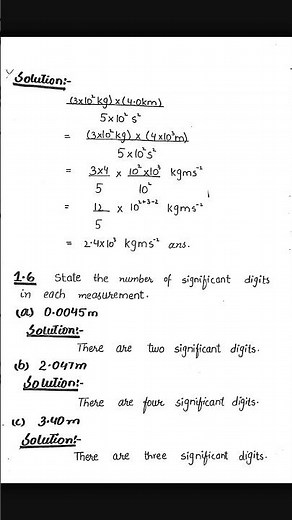 Solution:-
(3x10² kg) x (4.0km)
5x10² s²
= (3x10² kg) x (4x10³m)
5x10² s²
= 3x4 x 10² x10³ kgms⁻²
5 10²
= 12 x 10²⁺³⁻² kgms⁻²
5
= 2.4x10³ kgms⁻² ans.
1.6 State the number of significant digits
in each measurement.
(a) 0.0045m
Solution:-
There are two significant digits.
(b) 2.047m
Solution:-
There are four significant digits.
(c) 3.40m
Solution:-
There are three significant digits.